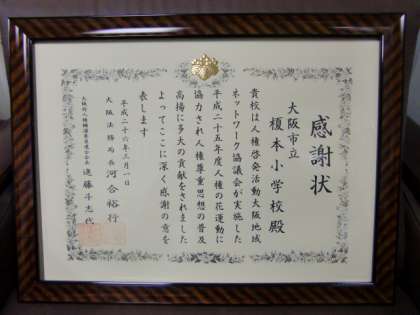 感謝状
大阪市立
榎本小学校殿
貴校は人権啓発活動大阪地域
ネットワーク協議会が実施した
平成二十五年度人権の花運動に
協力され人権尊重思想の普及
高揚に多大の貢献をされました
よってここに深く感謝の意を
表します
平成二十六年三月一日
大阪法務局長 河合裕行
大阪府人権擁護委員連合会会長 進藤斗志代